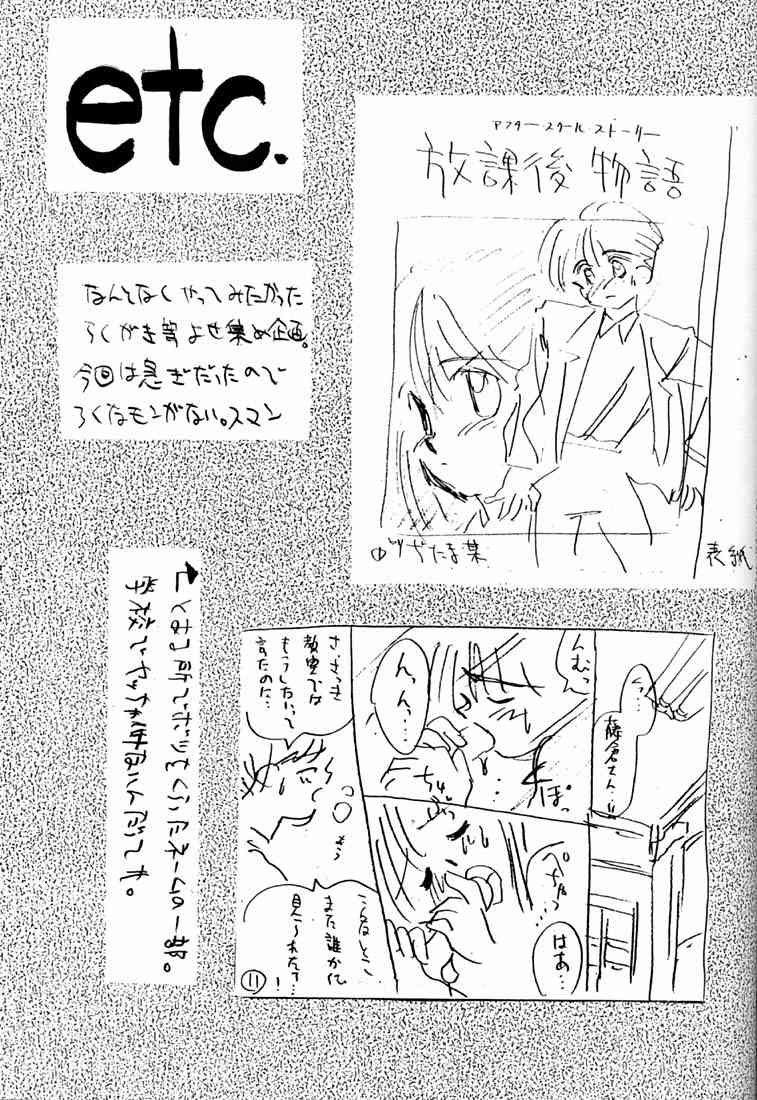 etc.
アフタースクールストーリー
放課後物語
なんとなくやってみたかった
らくがき等よせ集め企画。
今回は急ぎだったので
ろくなモンがない。スマン
表紙
とある所でボツをくらったネームの一部。
学校でヤッちゃいけないんだってさ。
う…
藤倉さん…!!
んむっ
ん、ん…
ちゅ
ぽっ
さ、さっき
教室では
もうしないって
言たのに…
ぺちゃっ
はあ…
こんなとこ
また誰かに
見られたら…!
11